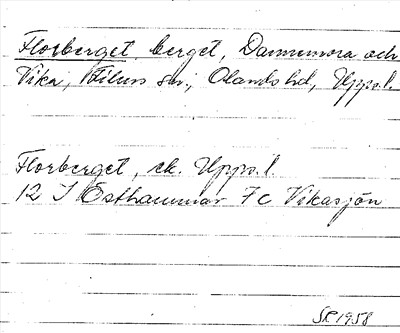 Florberget, berget, Dannemora och
Vika, Films sn., Olands hd, Upps.l.
Florberget, ek. Upps.l.
12 I Östhammar 7c Vikasjön
SR 1958